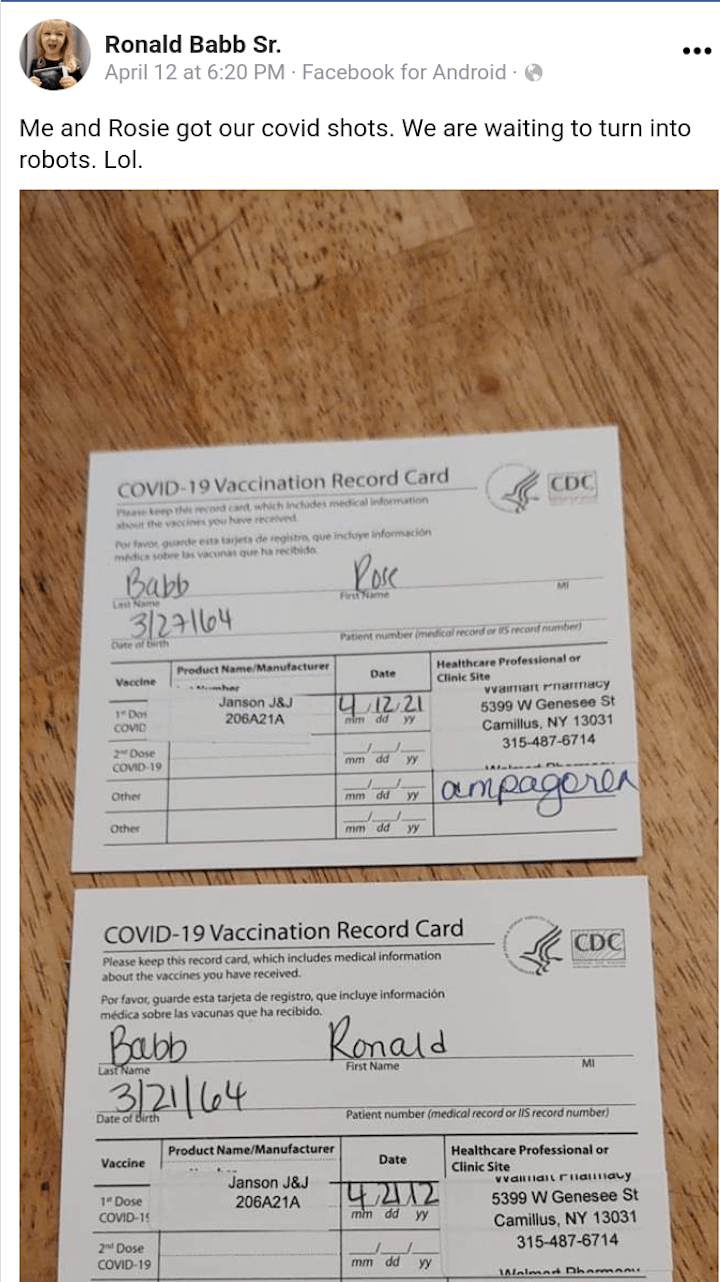 Ronald Babb Sr.
April 12 at 6:20 PM · Facebook for Android ·
Me and Rosie got our covid shots. We are waiting to turn into
robots. Lol.
COVID-19 Vaccination Record Card
CDC
Please keep this record card, which includes medical information
about the vaccines you have received.
Por favor, guarde esta tarjeta de registro, que incluye información
médica sobre las vacunas que ha recibido.
Babb Rose
Last Name First Name MI
3/27/64
Date of birth Patient number (medical record or IIS record number)
Vaccine Product Name/Manufacturer Date Healthcare Professional or
Clinic Site
Walmart Pharmacy
1st Dos Janson J&J 4/12/21 5399 W Genesee St
COVID 206A21A mm dd yy Camillus, NY 13031
315-487-6714
2nd Dose
COVID-19 mm dd yy
Other mm dd yy
Other mm dd yy
COVID-19 Vaccination Record Card
CDC
Please keep this record card, which includes medical information
about the vaccines you have received.
Por favor, guarde esta tarjeta de registro, que incluye información
médica sobre las vacunas que ha recibido.
Babb Ronald
Last Name First Name MI
3/21/64
Date of Birth Patient number (medical record or IIS record number)
Vaccine Product Name/Manufacturer Date Healthcare Professional or
Clinic Site
Walmart Pharmacy
1st Dose Janson J&J 4 21 12 5399 W Genesee St
COVID-19 206A21A mm dd yy Camillus, NY 13031
315-487-6714
2nd Dose
COVID-19 mm dd yy
Walmart Pharmacy